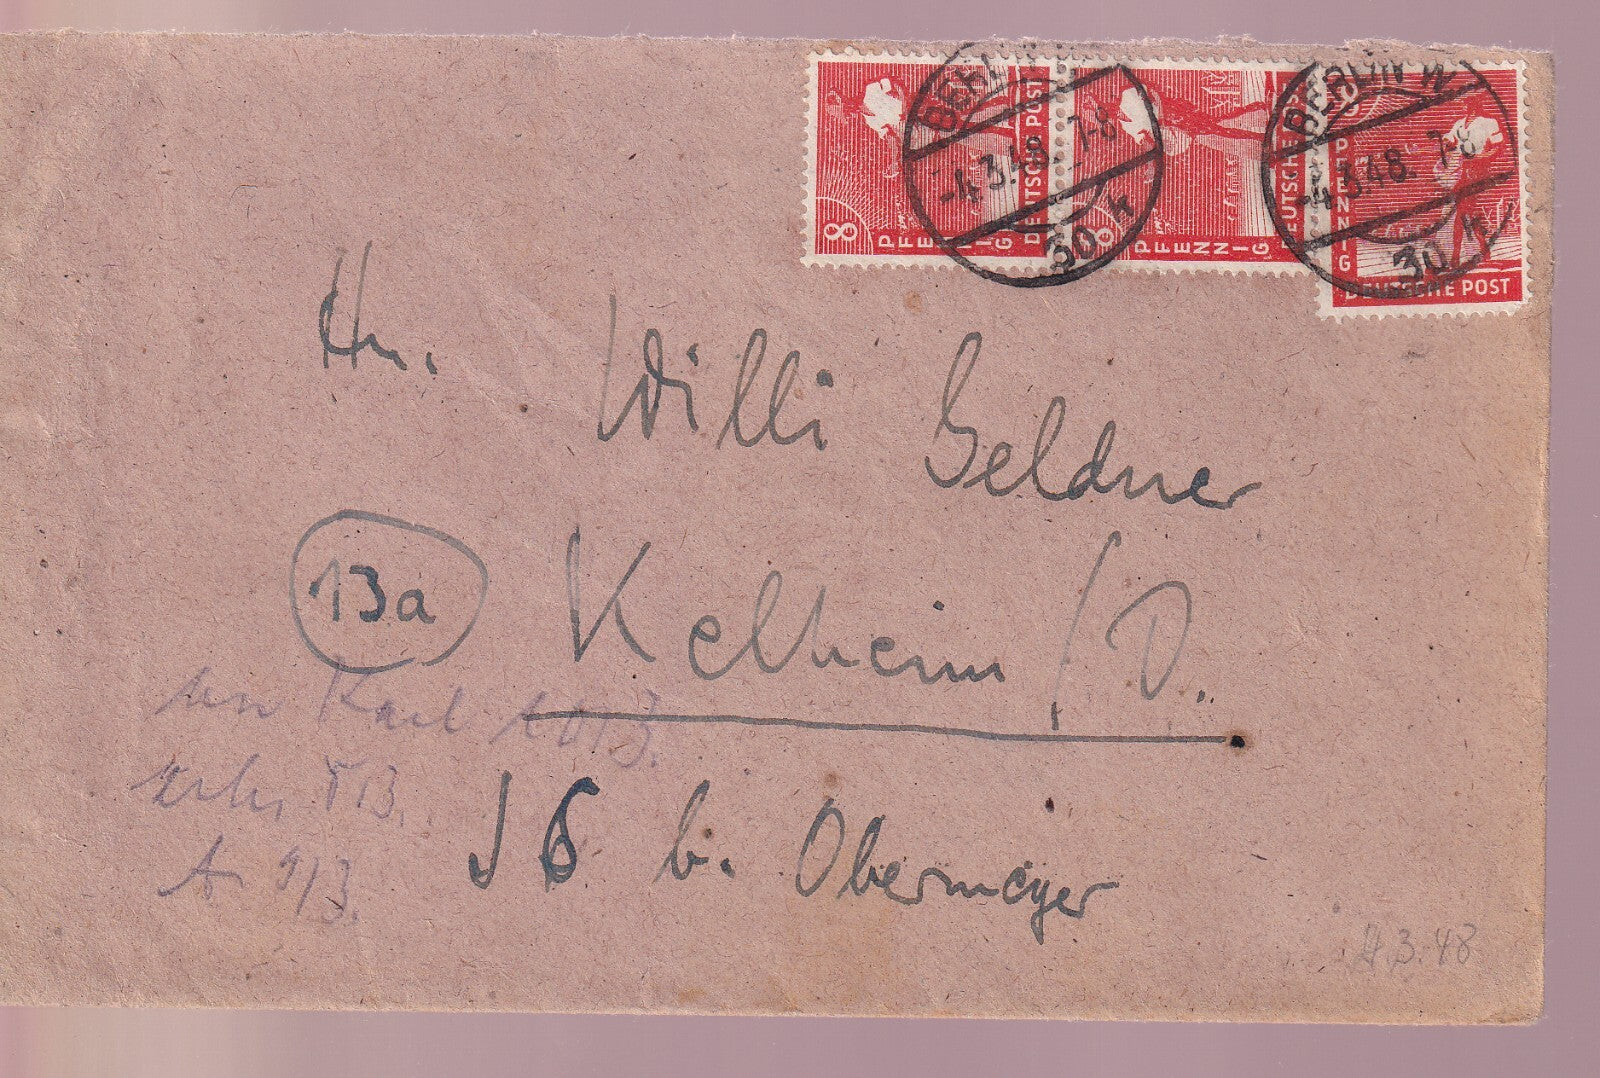 8 PFENNIG DEUTSCHE POST
8 PFENNIG DEUTSCHE POST
8 PFENNIG DEUTSCHE POST
BERLIN W
-4.3.48. 7-8
30 h
BERLIN W
-4.3.48. 7-8
30 h
Hn. Willi Geldner
13a Kelheim / D.
b. Obermeyer
4.3.48